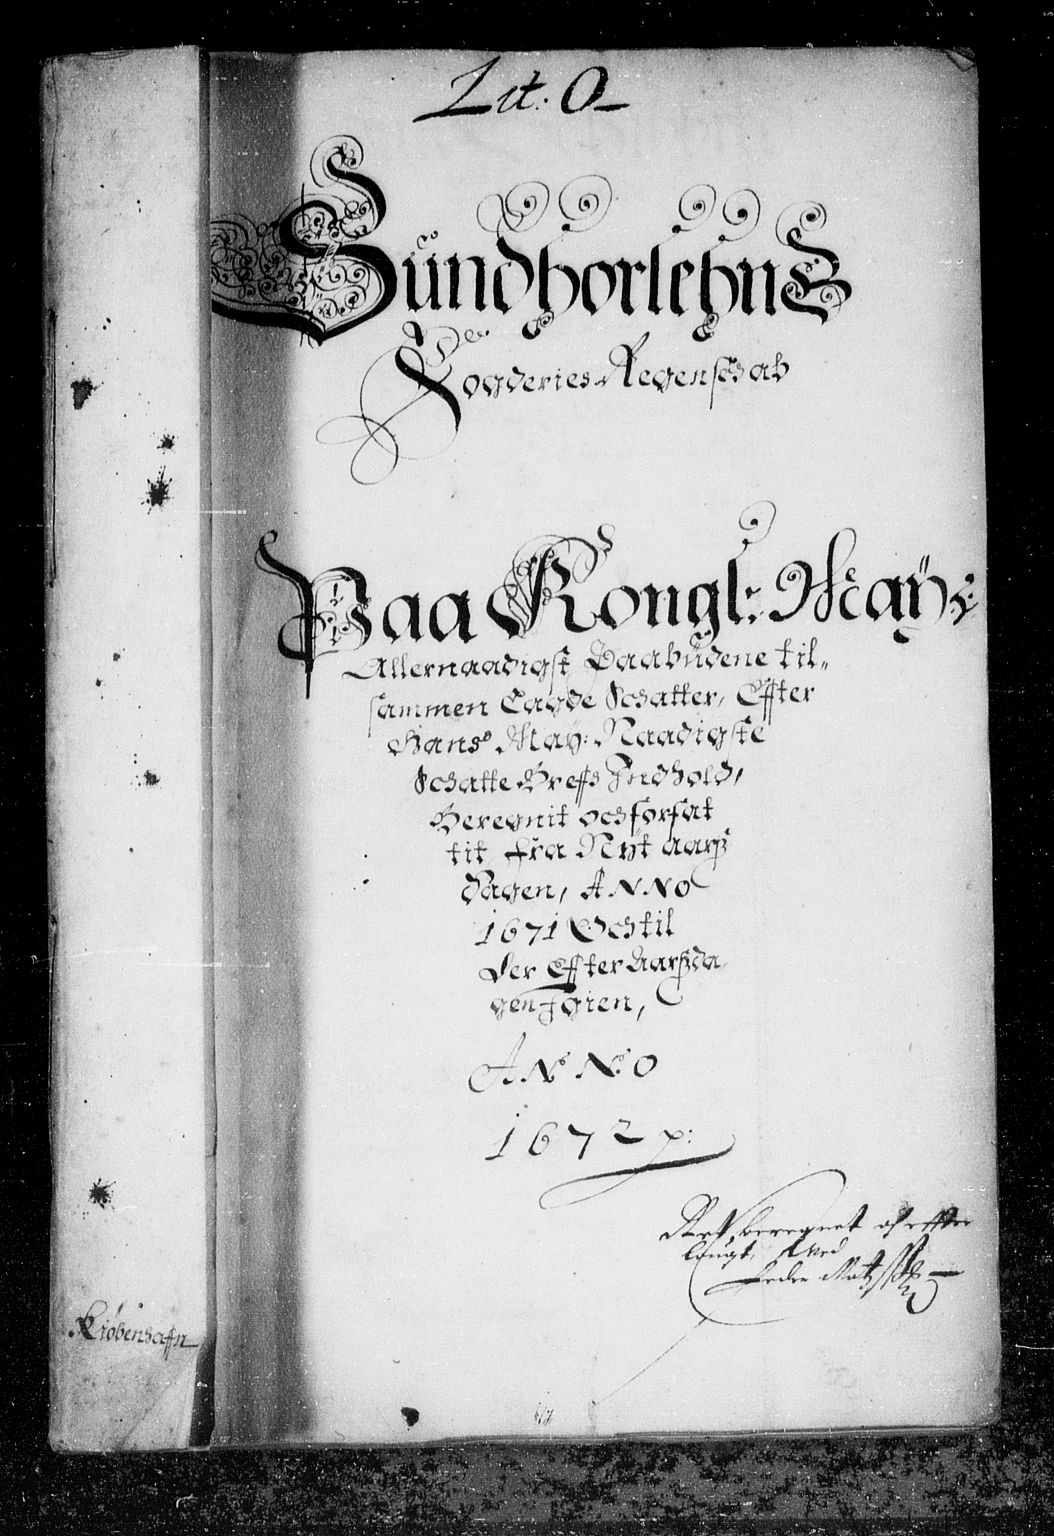 Lit: O
Sundhorlehns
Fogderies Regenschab
Paa Kongl: May:
Allernaadigst Paabudene til-
sammen Lagde Schatter, Effter
Hans May: Naadigste
Schatte Breffs Indhold,
Beregnit och forfat
tit fra Nyt aars
dagen, ANNO
1671 Och til
der Effter Aarsda
gen Igien,
ANNO
1672 p:
Ret beregnet
laugt, Med
Peder
Kiøbenhaffn